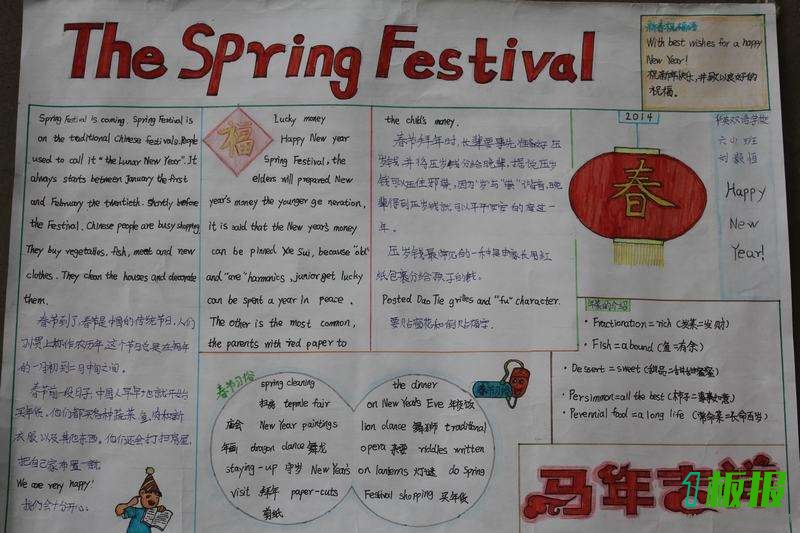 The Spring Festival
新春祝福语
With best wishes for a happy
New Year!
祝新年快乐,并致以良好的
祝福。
Spring Festival is coming. Spring Festival is
on the traditional Chinese festivals. People
used to call it "the Lunar New Year". It
always starts between January the first
and February the twentieth. Shortly before
the Festival. Chinese people are busy shopping
They buy vegetables, fish, meat and new
clothes. They clean the houses and decorate
them.
春节到了,春节是中国的传统节日,人们
习惯上称作农历年。这个节日总是在每年
的一月初到二月中间之间。
春节前一段日子,中国人早早地就开始
买年货。他们都采购蔬菜、鱼、肉和新
衣服以及其他东西。他们还会打扫房屋,
把自己家布置一新。
We are very happy!
我们会十分开心。
福
Lucky money
Happy New year
Spring Festival, the
elders will prepared New
year's money the younger ge neration,
it is said that the New year's money
can be pinned Xie Sui, because "old"
and "are" harmonics, junior get lucky
can be spent a year in peace.
The other is the most common,
the parents with red paper to
the child's money.
春节拜年时,长辈要事先准备好压
岁钱并将压岁钱分给晚辈,据说压岁
钱可以压住邪祟,因为"岁"与"祟"谐音,晚
辈得到压岁钱就可以平平安安的度过一
年。
压岁钱最常见的一种是由家长用红
纸包裹分给孩子的钱。
Posted Dao Tie grilles and "fu" character.
要贴窗花和倒贴福字。
2014
春
华英双语学校
六(4)班
Happy
New
Year!
年菜的介绍
· Fractionation = rich (发菜=发财)
· Fish = abound (鱼=有余)
· Dessert = sweet (甜品=甜甜蜜蜜)
· Persimmon = all the best (柿子=事事如意)
· Perennial food = a long life (常命菜=长命百岁)
春节习俗
spring cleaning
扫房 temple fair
庙会 New Year paintings
年画 dragon dance 舞龙
staying-up 守岁 New Year's
visit 拜年 paper-cuts
剪纸
春节习俗
the dinner
on New Year's Eve 年夜饭
lion dance 舞狮 traditional
opera 京剧 riddles written
on lanterns 灯谜 do Spring
Festival shopping 买年货
马年吉祥
1板报